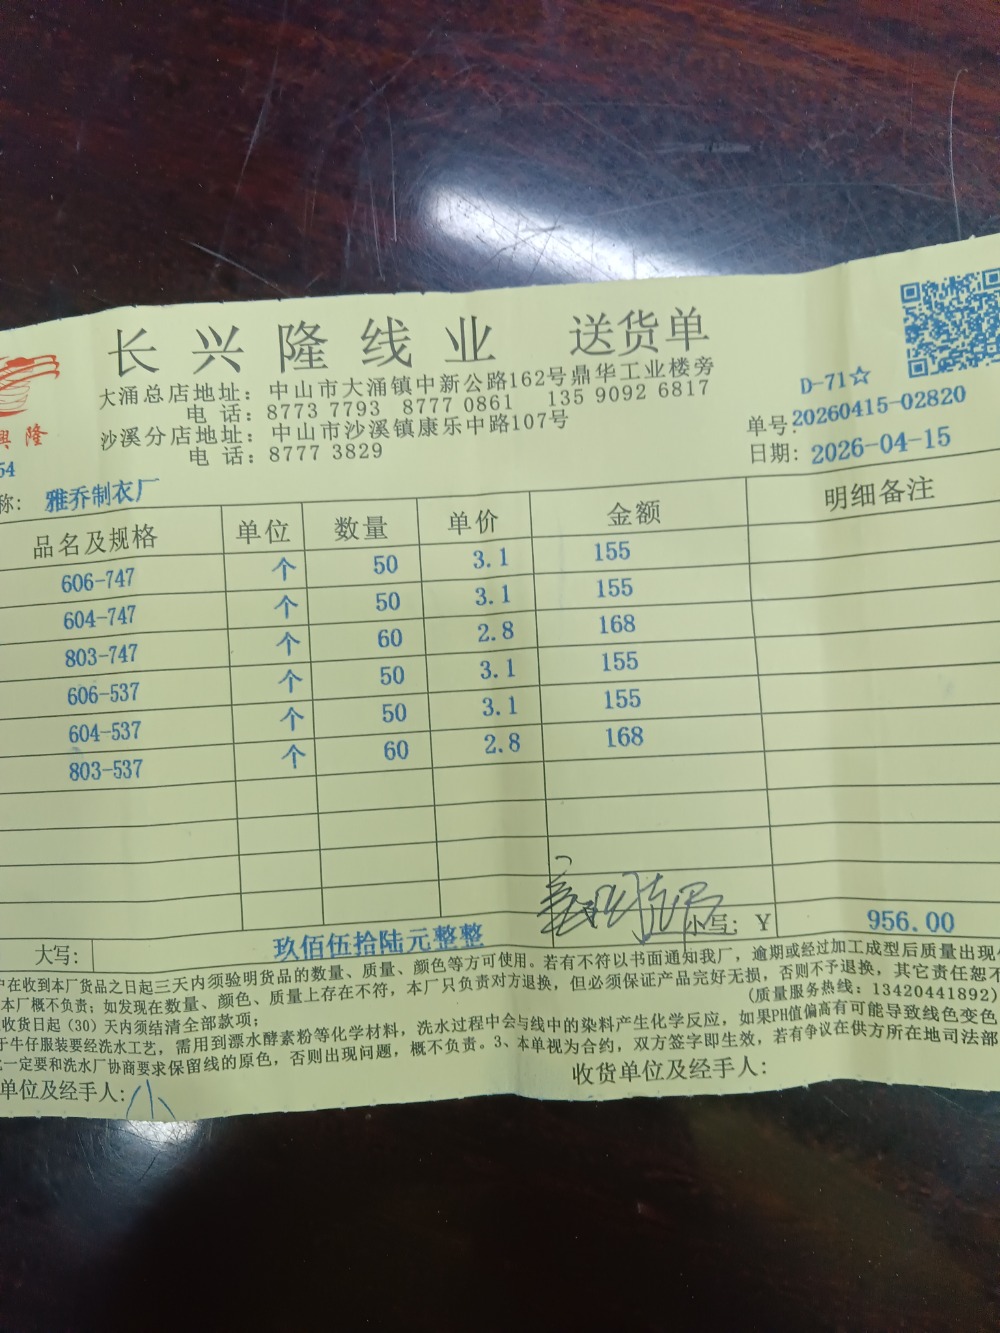 长兴隆线业 送货单
大涌总店地址：中山市大涌镇中新公路162号鼎华工业楼旁
电话：8773 7793 8777 0861 135 9092 6817
沙溪分店地址：中山市沙溪镇康乐中路107号
电话：8777 3829
D-71☆
单号:20260415-02820
日期: 2026-04-15
興隆
54
称: 雅乔制衣厂
品名及规格 单位 数量 单价 金额 明细备注
606-747 个 50 3.1 155
604-747 个 50 3.1 155
803-747 个 60 2.8 168
606-537 个 50 3.1 155
604-537 个 50 3.1 155
803-537 个 60 2.8 168
大写: 玖佰伍拾陆元整整 小写: Y 956.00
在收到本厂货品之日起三天内须验明货品的数量、质量、颜色等方可使用。若有不符以书面通知我厂，逾期或经过加工成型后质量出现
本厂概不负责；如发现在数量、颜色、质量上存在不符，本厂只负责对方退换，但必须保证产品完好无损，否则不予退换，其它责任恕不
收货日起（30）天内须结清全部款项； (质量服务热线：13420441892)
于牛仔服装要经洗水工艺，需用到漂水酵素粉等化学材料，洗水过程中会与线中的染料产生化学反应，如果PH值偏高有可能导致线色变色
一定要和洗水厂协商要求保留线的原色，否则出现问题，概不负责。3、本单视为合约，双方签字即生效，若有争议在供方所在地司法部
单位及经手人: 小 收货单位及经手人: